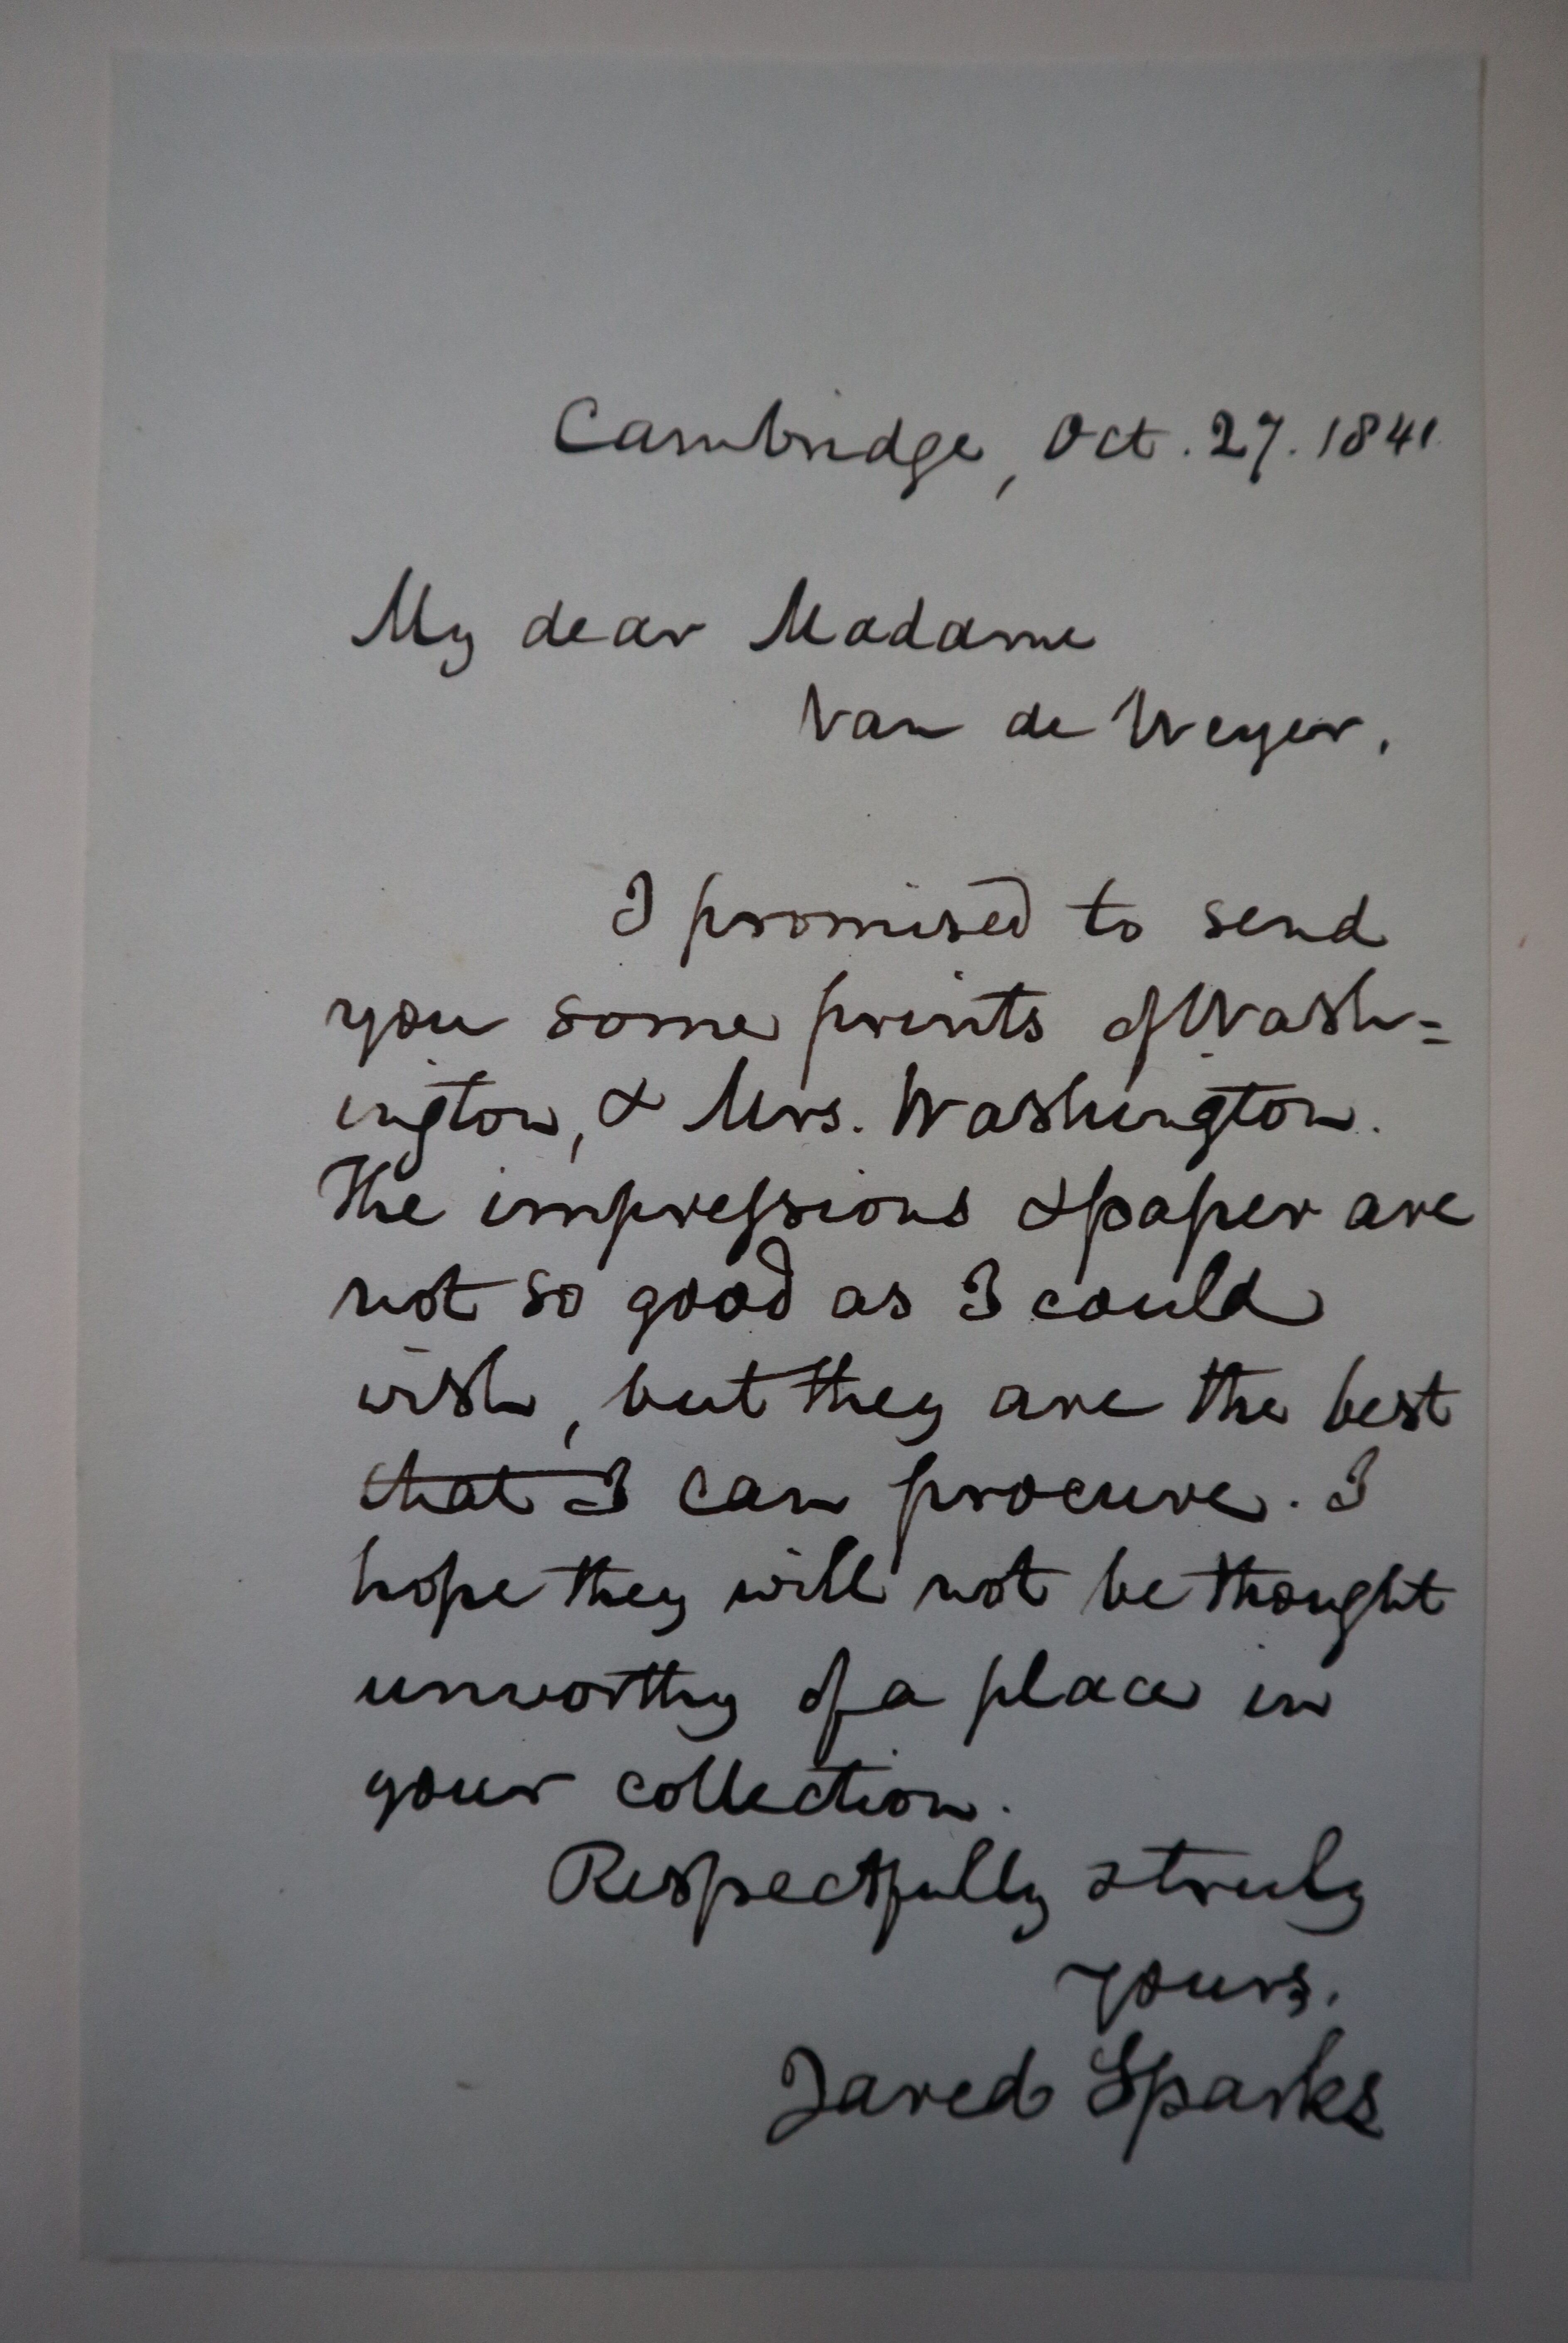 Cambridge, Oct. 27. 1841
My dear Madame
Van de Weyer,
I promised to send
you some prints of Wash=
ington, & Mrs. Washington.
The impressions & paper are
not so good as I could
wish, but they are the best
that I can procure. I
hope they will not be thought
unworthy of a place in
your collection.
Respectfully & truly
yours,
Jared Sparks